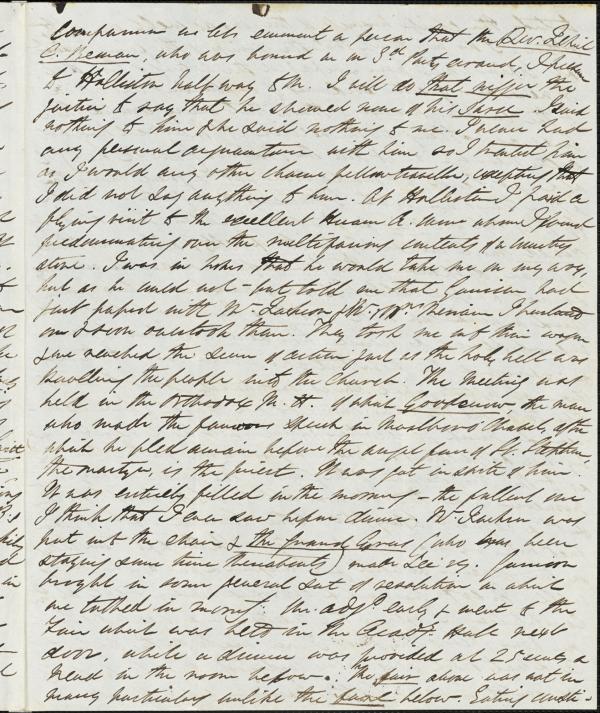 companion no less eminent a person that the Rev. Jehiel
C. Beman, who was bound as on 3d Party around, I
to Holliston half way to M. I will do that the
justice to say that he shewed none of his sauce. I said
nothing to him & he said nothing to me. I never had
any personal acquaintance with him so I treated him
as I would any other chance fellow-traveller, excepting that
I did not say anything to him. At Holliston I paid a
flying visit to the excellent A. whom I found
predominating over the multifarious contents of a country
store. I was in hopes that he would take me on my way,
but as he could not – but told me that Garrison had
just passed with Mr Jackson & Mrs I hastened
on & soon overtook them. They took me into their wagon
& we reached the scene of action just as the holy bell was
knolling the people into the Church. The meeting was
held in the Orthodox M. H. of which Goodenow, the man
who made the famous speech in Marlboro' Chapel, after
which he pled before the angel face of St. Stephen,
the martyr, is the priest. It was got in spite of him.
It was entirely filled in the morning – the fullest one
I think that I ever saw before dinner. Mr Jackson was
put into the chair & the (who has been
staying some time thereabouts) made Sec'y. Garrison
brought in some general set of resolutions on which
we talked in morng: the adjd early & went to the
Fair which was held in the Acady Hall next
door, while a dinner was provided at 25 cents a
head in the room below. The fair above was not in
many particulars unlike the fare below. Eating